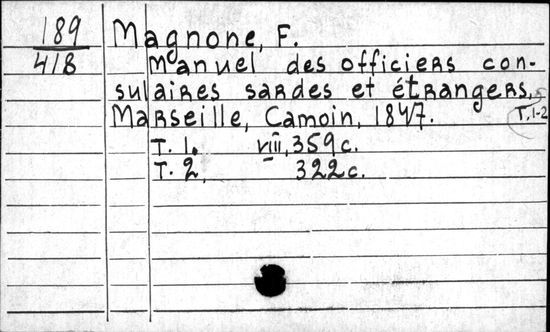 189
418
Magnone, F.
Manuel des officiers con-
sulaires sardes et étrangers,
Marseille, Camoin, 1847.
T.1-2
T. 1. VIII, 359 c.
T. 2, 322 c.